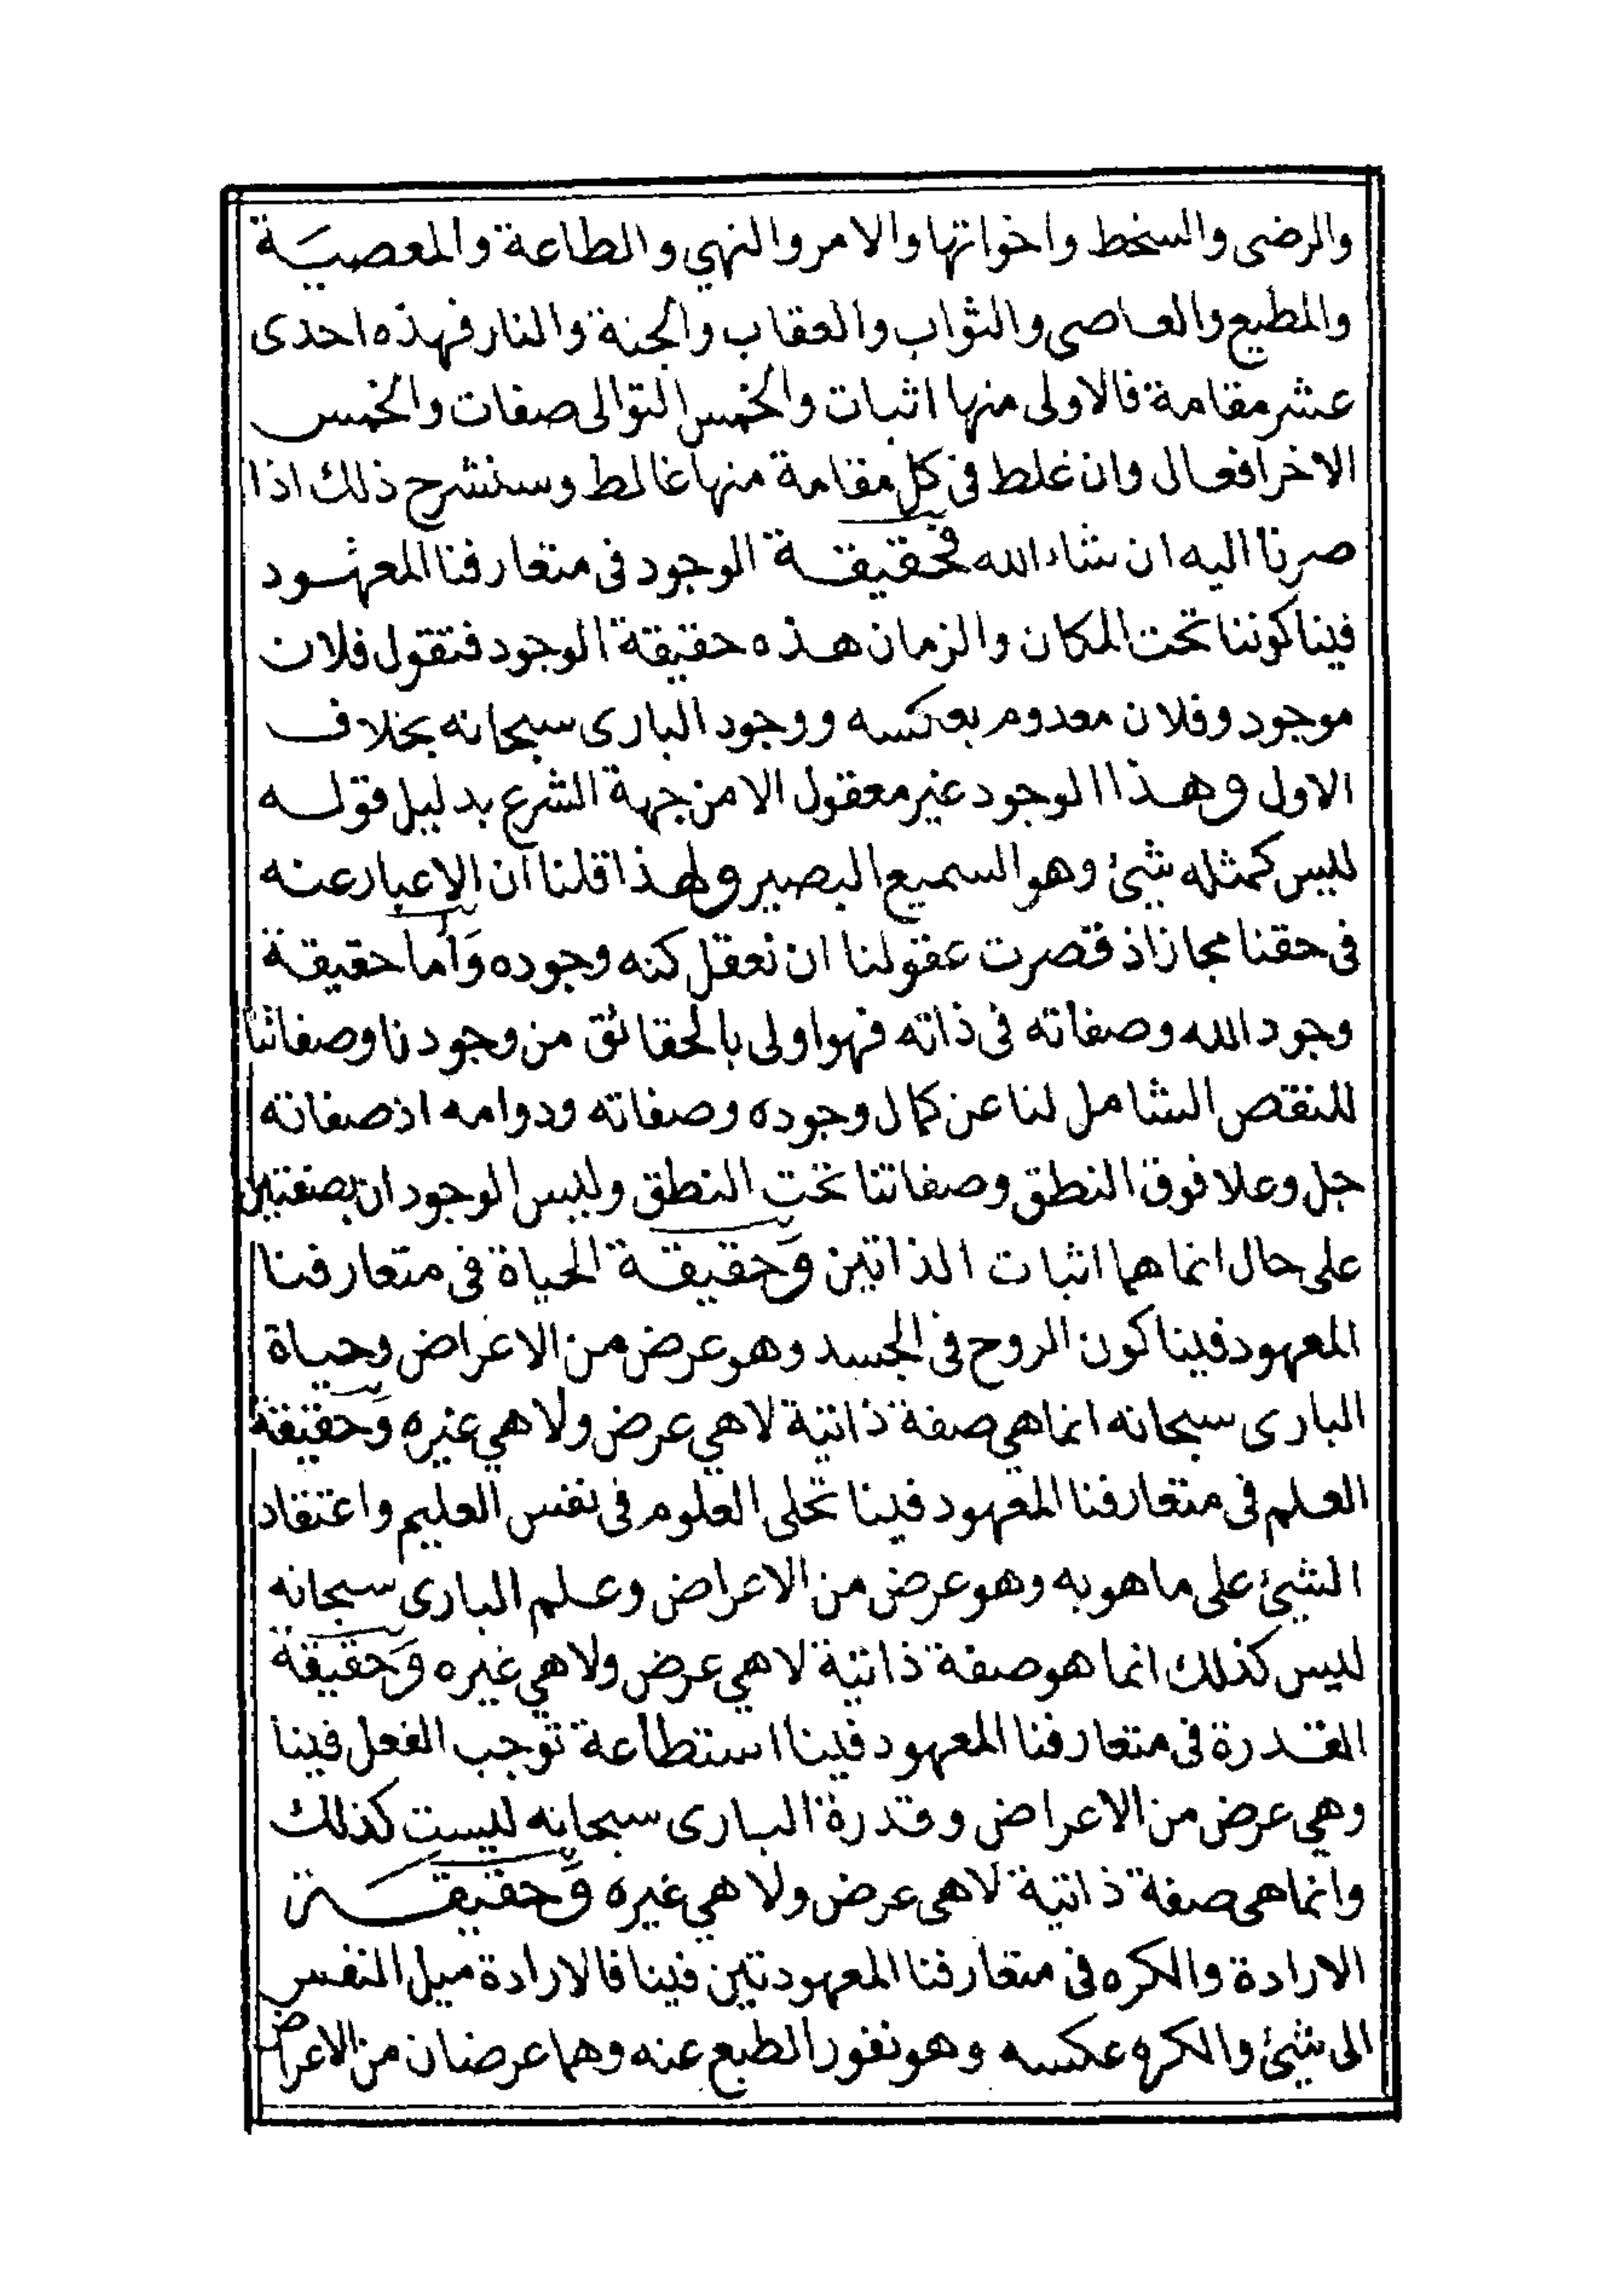 والرضى والسخط واخواتها والامر والنهي والطاعة والمعصية
والمطيع والعاصى والثواب والعقاب والجنة والنار فهذه احدى
عشر مقامة فالاولى منها اثبات والخمس التوالى صفات والخمس
الاخر افعال وان غلط فى كل مقامة منها غالط وسنشرح ذلك اذا
صرنا اليه ان شاء الله فحقيقة الوجود فى متعارفنا المعهود
فينا كوننا تحت المكان والزمان هذه حقيقة الوجود فتقول فلان
موجود وفلان معدوم بعكسه ووجود البارى سبحانه بخلاف
الاول وهذا الوجود غير معقول الا من جهة الشرع بدليل قوله
ليس كمثله شيئ وهو السميع البصير ولهذا قلنا ان الاعبار عنه
فى حقنا مجاز اذ قصرت عقولنا ان نعقل كنه وجوده وَاما حقيقة
وجود الله وصفاته فى ذاته فهو اولى بالحقائق من وجودنا وصفاتنا
للنقص الشامل لنا عن كمال وجوده وصفاته ودوامه اذ صفاته
جل وعلا فوق النطق وصفاتنا تحت النطق وليس الوجودان بصفتين
على حال انما هما اثبات الذاتين وَحقيقة الحياة فى متعارفنا
المعهود فينا كون الروح فى الجسد وهو عرض من الاعراض وحياة
البارى سبحانه انما هي صفة ذاتية لا هي عرض ولا هي غيره وَحقيقة
العلم فى متعارفنا المعهود فينا تحلى العلوم فى نفس العليم واعتقاد
الشيئ على ما هو به وهو عرض من الاعراض وعلم البارى سبحانه
ليس كذلك انما هو صفة ذاتية لا هي عرض ولا هي غيره وَحقيقة
القدرة فى متعارفنا المعهود فينا استطاعة توجب الفعل فينا
وهي عرض من الاعراض وقدرة البارى سبحانه ليست كذلك
وانما هى صفة ذاتية لا هى عرض ولا هي غيره وَحقيقة
الارادة والكره فى متعارفنا المعهودتين فينا فالارادة ميل النفس
الى شيئ والكره عكسه وهو نفور الطبع عنه وهما عرضان من الاعراض